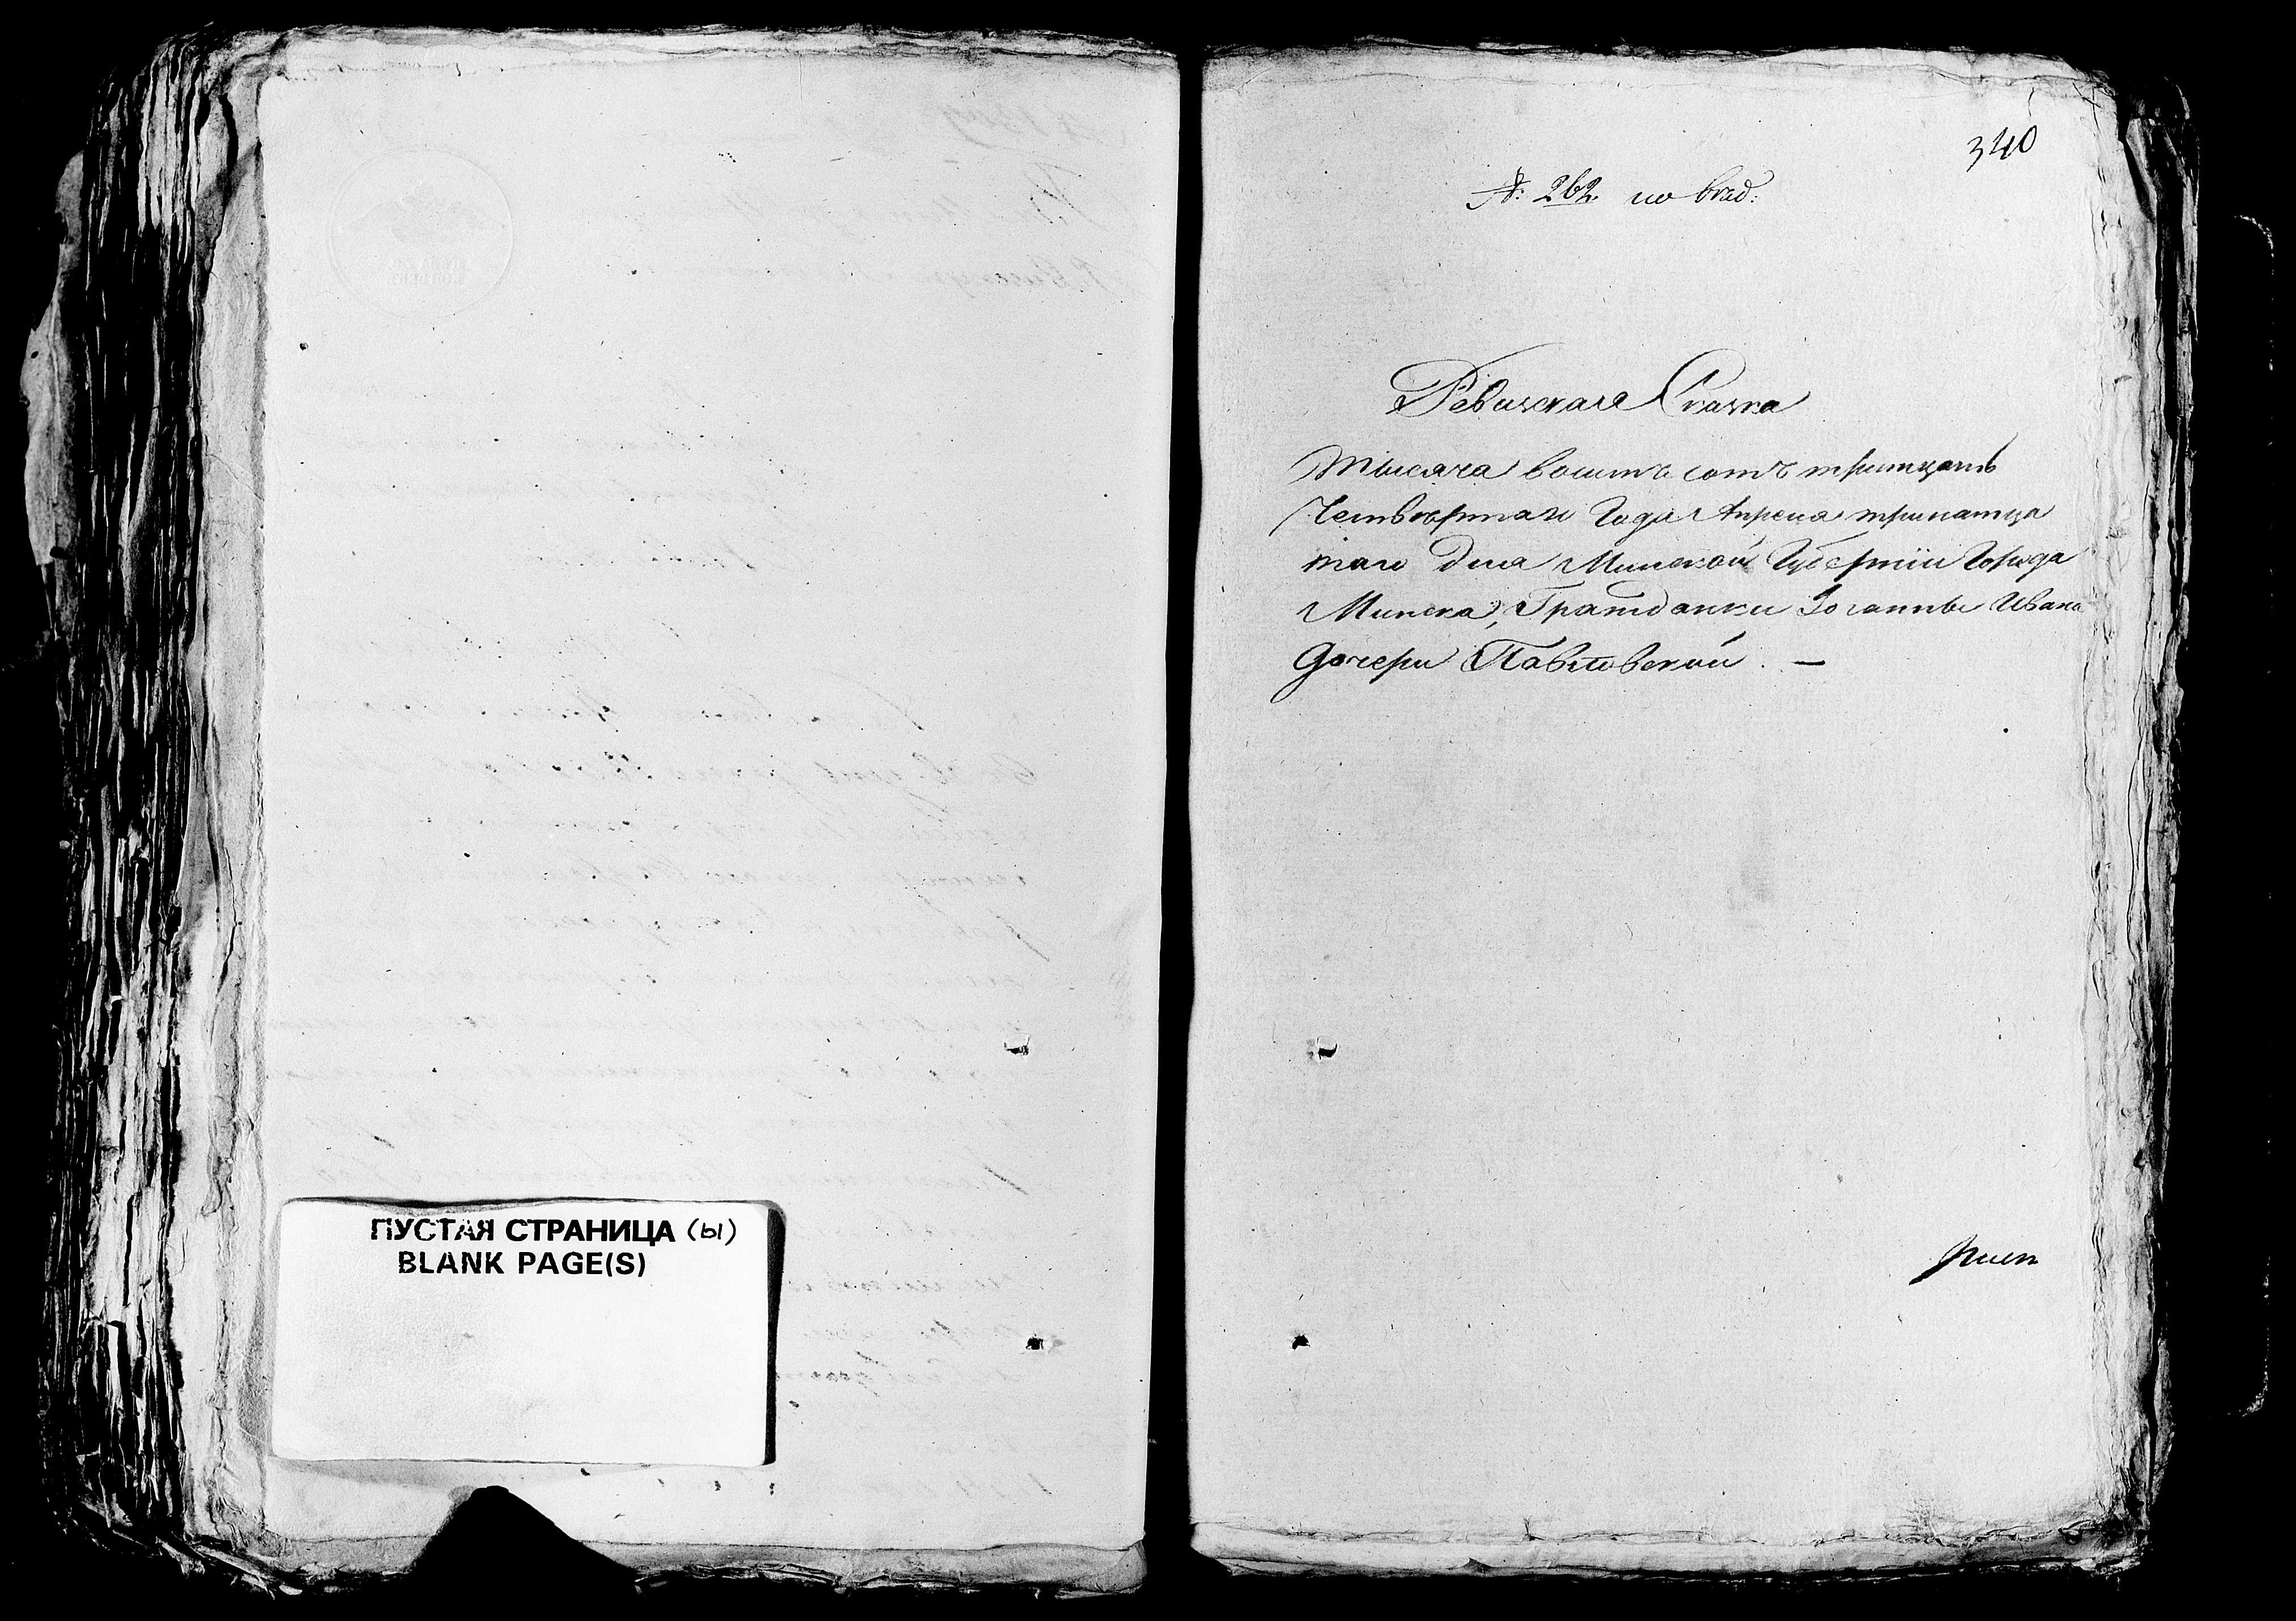 ПУСТАЯ СТРАНИЦА (ы)
BLANK PAGE(S)
340
№: 262. по
Ревизская Сказка
Тысяча восемъ сотъ тритцать
Четвертаго Года Апреля тринатца
таго Дня Минской Губернiи Города
Минска, Гражданки Иоганны Ивана
Дочери Павловской. —